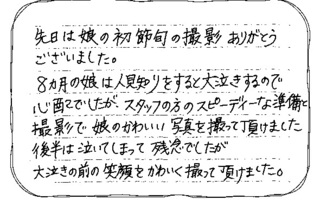 先日は娘の初節句の撮影ありがとう
ございました。
8ヵ月の娘は人見知りをすると大泣きするので
心配でしたが、スタッフの方のスピーディーな準備と
撮影で娘のかわいい写真を撮って頂けました
後半は泣いてしまって残念でしたが
大泣きの前の笑顔をかわいく撮って頂けました。